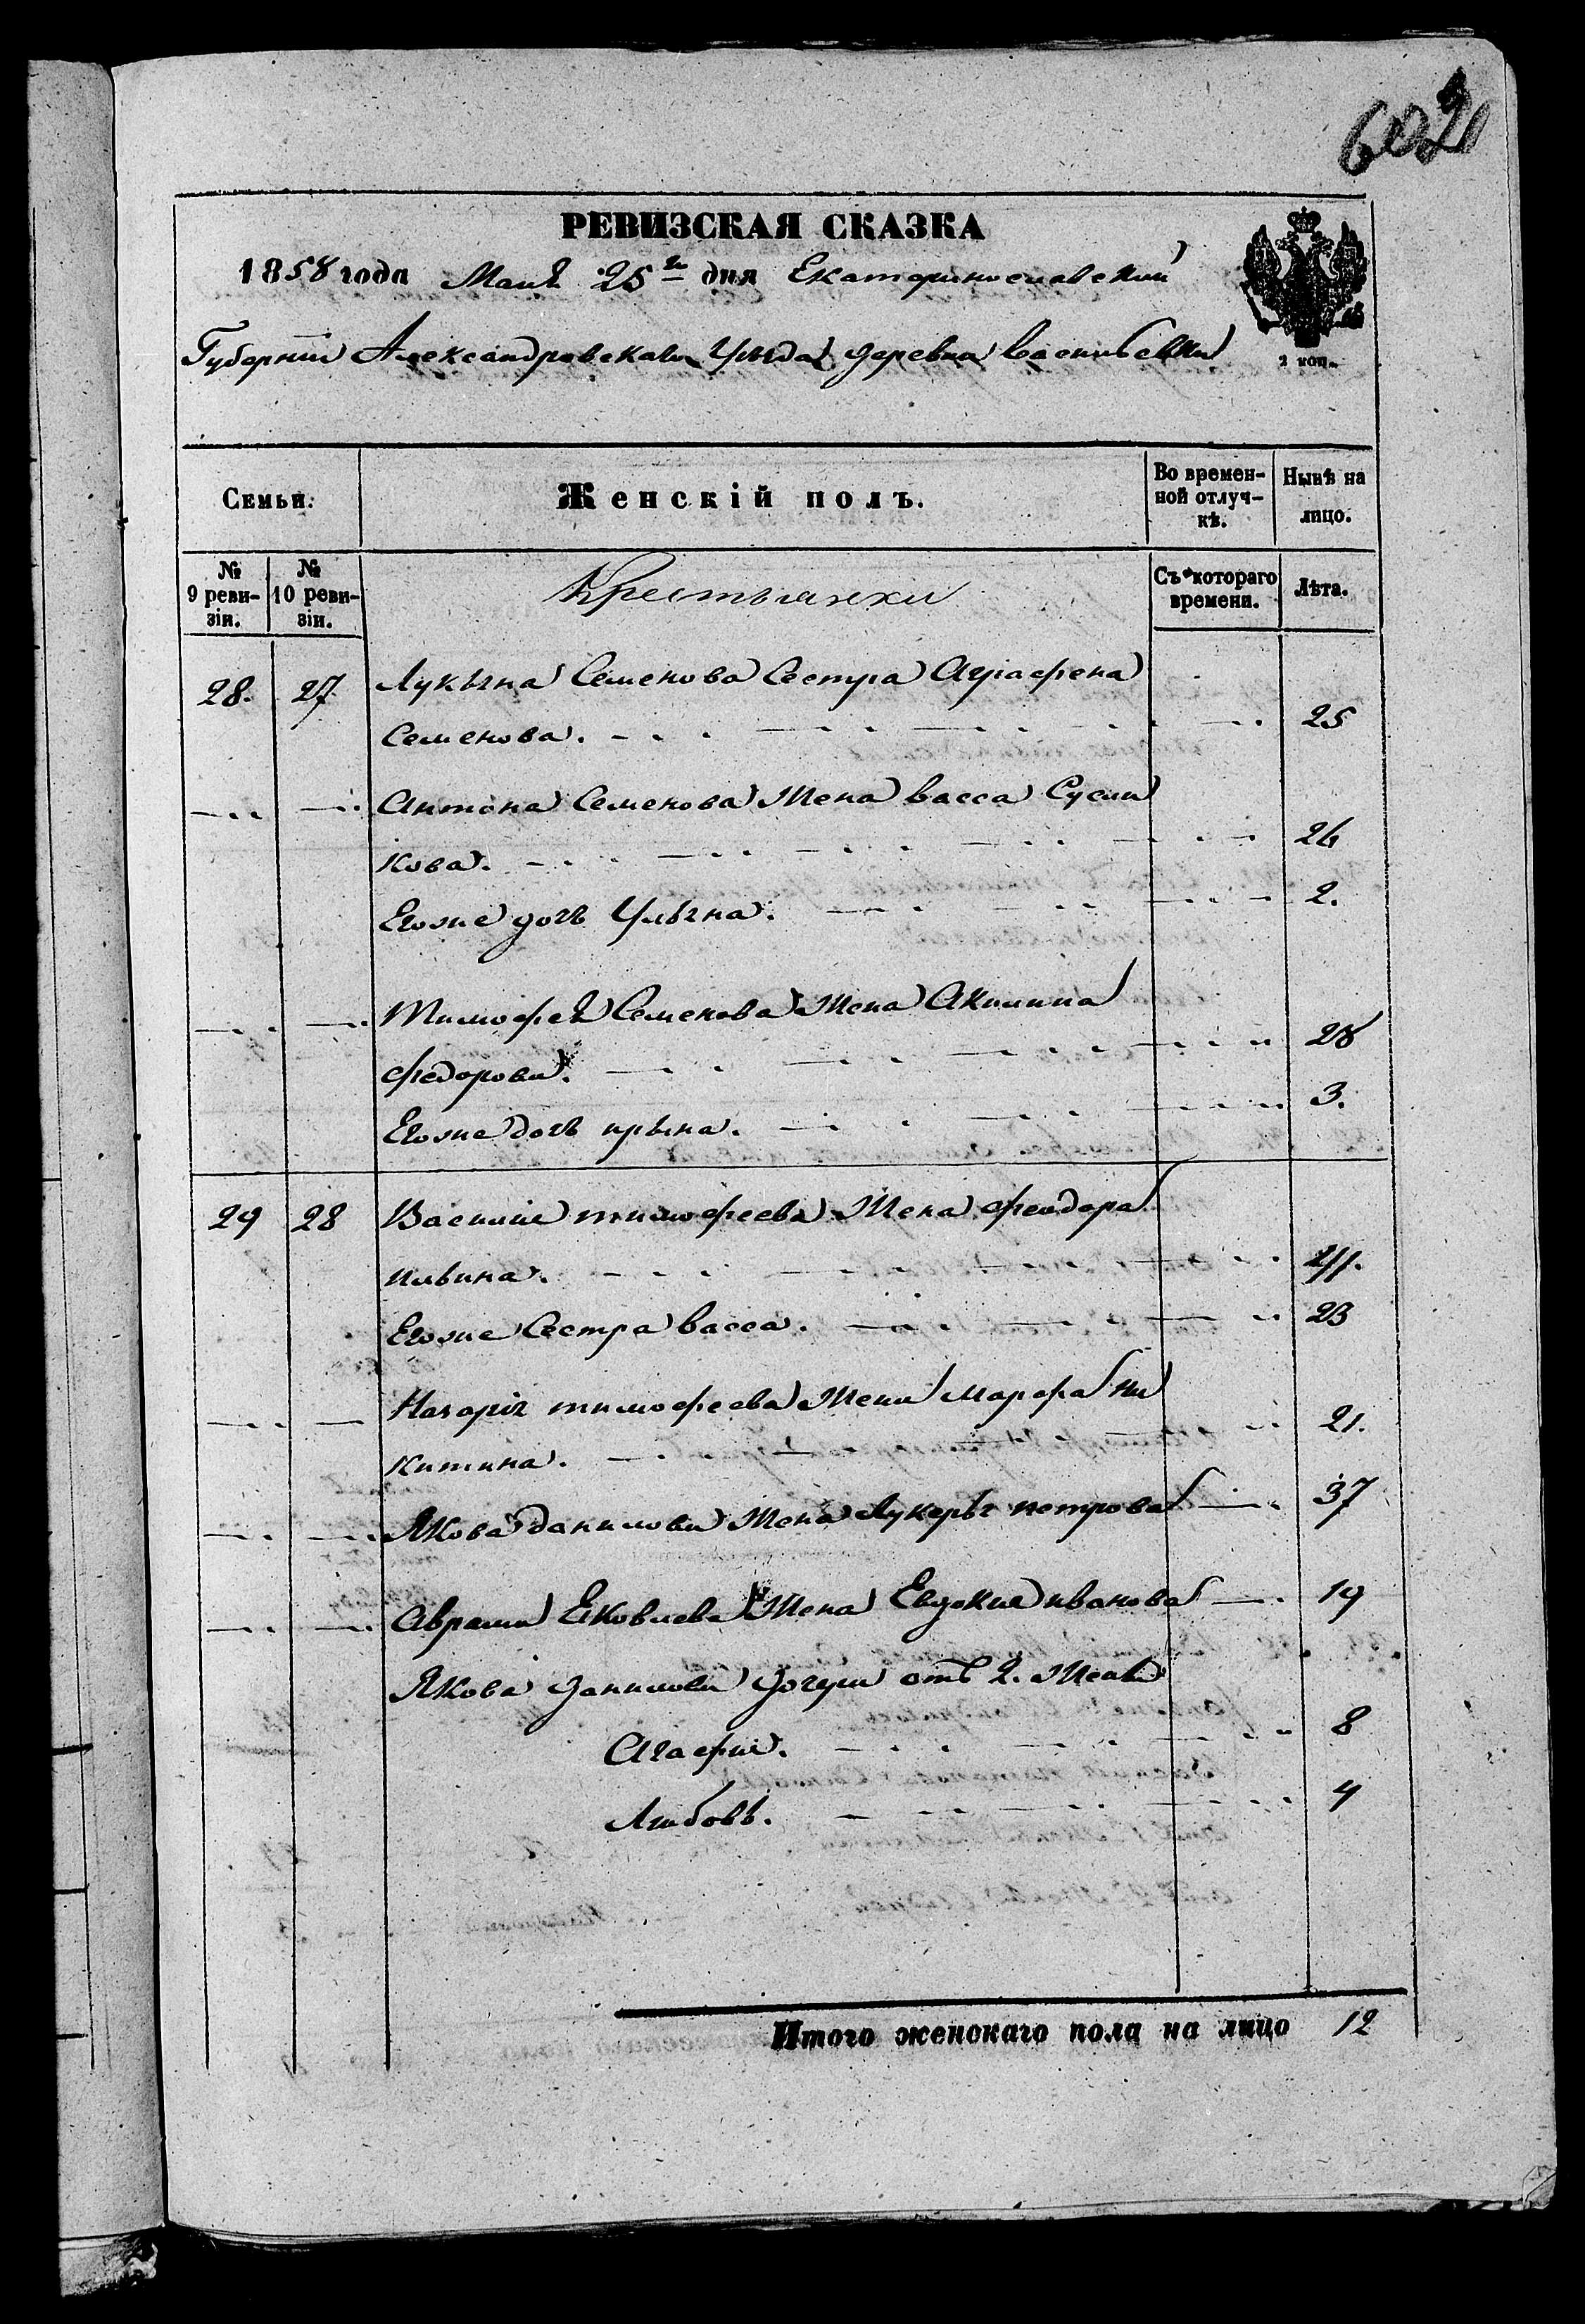 602
РЕВИЗСКАЯ СКАЗКА
1858 года Маия 25го дня Екатеринославский
Губернии Александровскаги Уезда деревна Васильевки
2 коп.
Семьи.
Женскій полъ.
Во времен-
ной отлуч-
кѣ.
Нынѣ на
лицо.
№
9 реви-
зіи.
№
10 реви-
зіи.
Крестьянки
Съ котораго
времени.
Лѣта.
28. 27 Лукьяна Семенова Сестра Аграфена
Семенова. 25
Антона Семенова Жена Васса Сусли
кова. 26
Егоже дочь Ульяна. 2.
Тимофея Семенова Жена Акилина
федорова. 28
Егоже дочь ирына. 3.
29 28 Василия тимофеева Жена феодора
ильина.
Егоже Сестра Васса. 23
Назарія тимофеева Жена Марфа Ни
китина. 21.
Якова данилова Жена Лукерья петрова 37
Аврама Яковлева Жена Евдокия иванова 19
Якова данилова дочери отъ 2. Жены
Агафия. 8
Любовь. 4
Итого женскаго пола на лицо 12